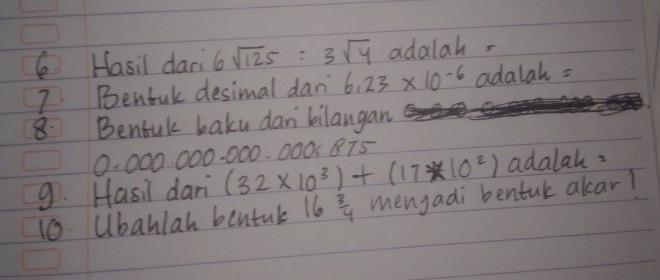 6. Hasil dari 6√125 : 3√4 adalah =
7 Bentuk desimal dari 6,23 × 10⁻⁶ adalah =
8. Bentuk baku dari bilangan
0.000.000.000.000875
9. Hasil dari (32 × 10³) + (17 × 10²) adalah =
10. Ubahlah bentuk 16 ¾ menjadi bentuk akar!